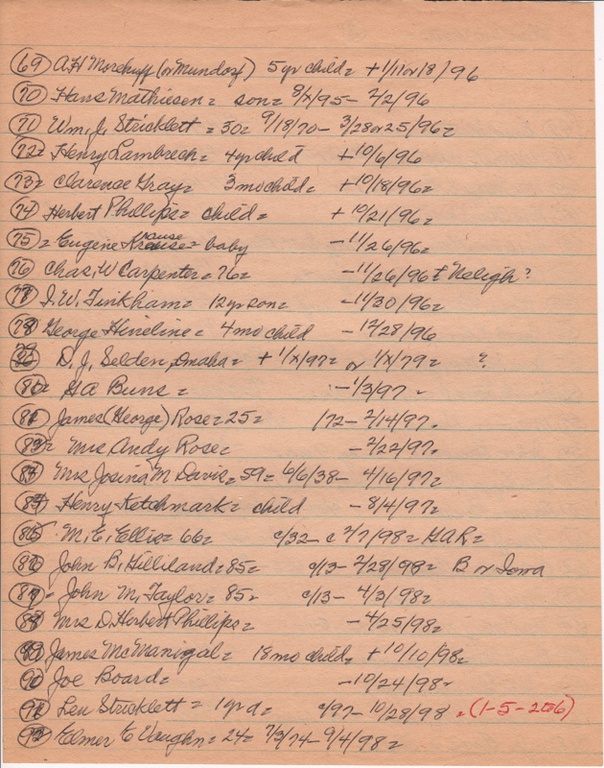 (69) A.H Morehuff (or Mundorf) 5yr child = +1/11 or 18/96
(70) Hans Mathiesen = son = 8/x/95 - 2/2/96
(71) Wm. J. Stricklett = 50 = 9/18/70 - 3/28 or 25/96 =
(72) Henry Lambrech = 4yr child +10/6/96
(73) = Clarence Gray = 3 mo child = +10/18/96 =
(74) Herbert Phillips = child = +10/21/96 =
(75) = Eugene Krause = baby -11/26/96 =
(76) Chas. W Carpenter = 76 = -11/26/96 + Neligh?
(77) J. W. Tinkham = 12yr son = -11/30/96 =
(78) George Hineline = 4 mo child -12/28/96
(79) D. J. Selden, Omaha = + 1/x/97 = or 1/x/79 = ?
(80) = GA Buns = -1/3/97 -
(81) James (George) Rose = 25 = /72 - 2/14/97.
(82) = Mrs Andy Rose = -2/22/97.
(83) Mrs Josina M Davis = 59 = 6/6/38 - 4/16/97 =
(84) Henry Ketchmark = child -8/4/97 =
(85) M. E. Ellis = 66 = c/32 - c 2/7/98 = GAR =
(86) John B. Hilliland = 85 = c/13 - 2/28/98 = B or Iowa
(87) = John M. Taylor = 85 = c/13 - 4/3/98 =
(88) Mrs D. Herbert Phillips = -4/25/98 =
(89) James McManigal = 18 mo child, +10/10/98 =
(90) Joe Board = -10/24/98 =
(91) Len Stricklett = 1yr d = c/97 - 10/28/98 = (1-5-2006)
(92) Elmer E Vaughn = 24 = 7/3/74 - 9/4/98 =